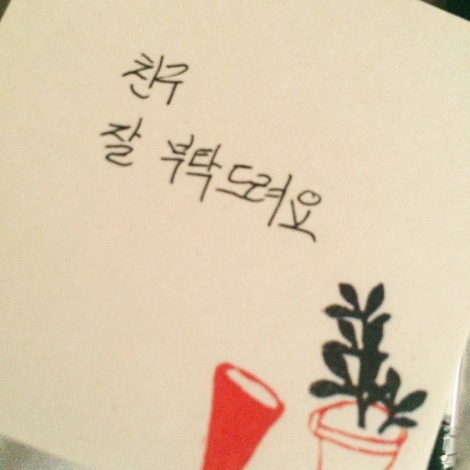 친구
잘 부탁드려요